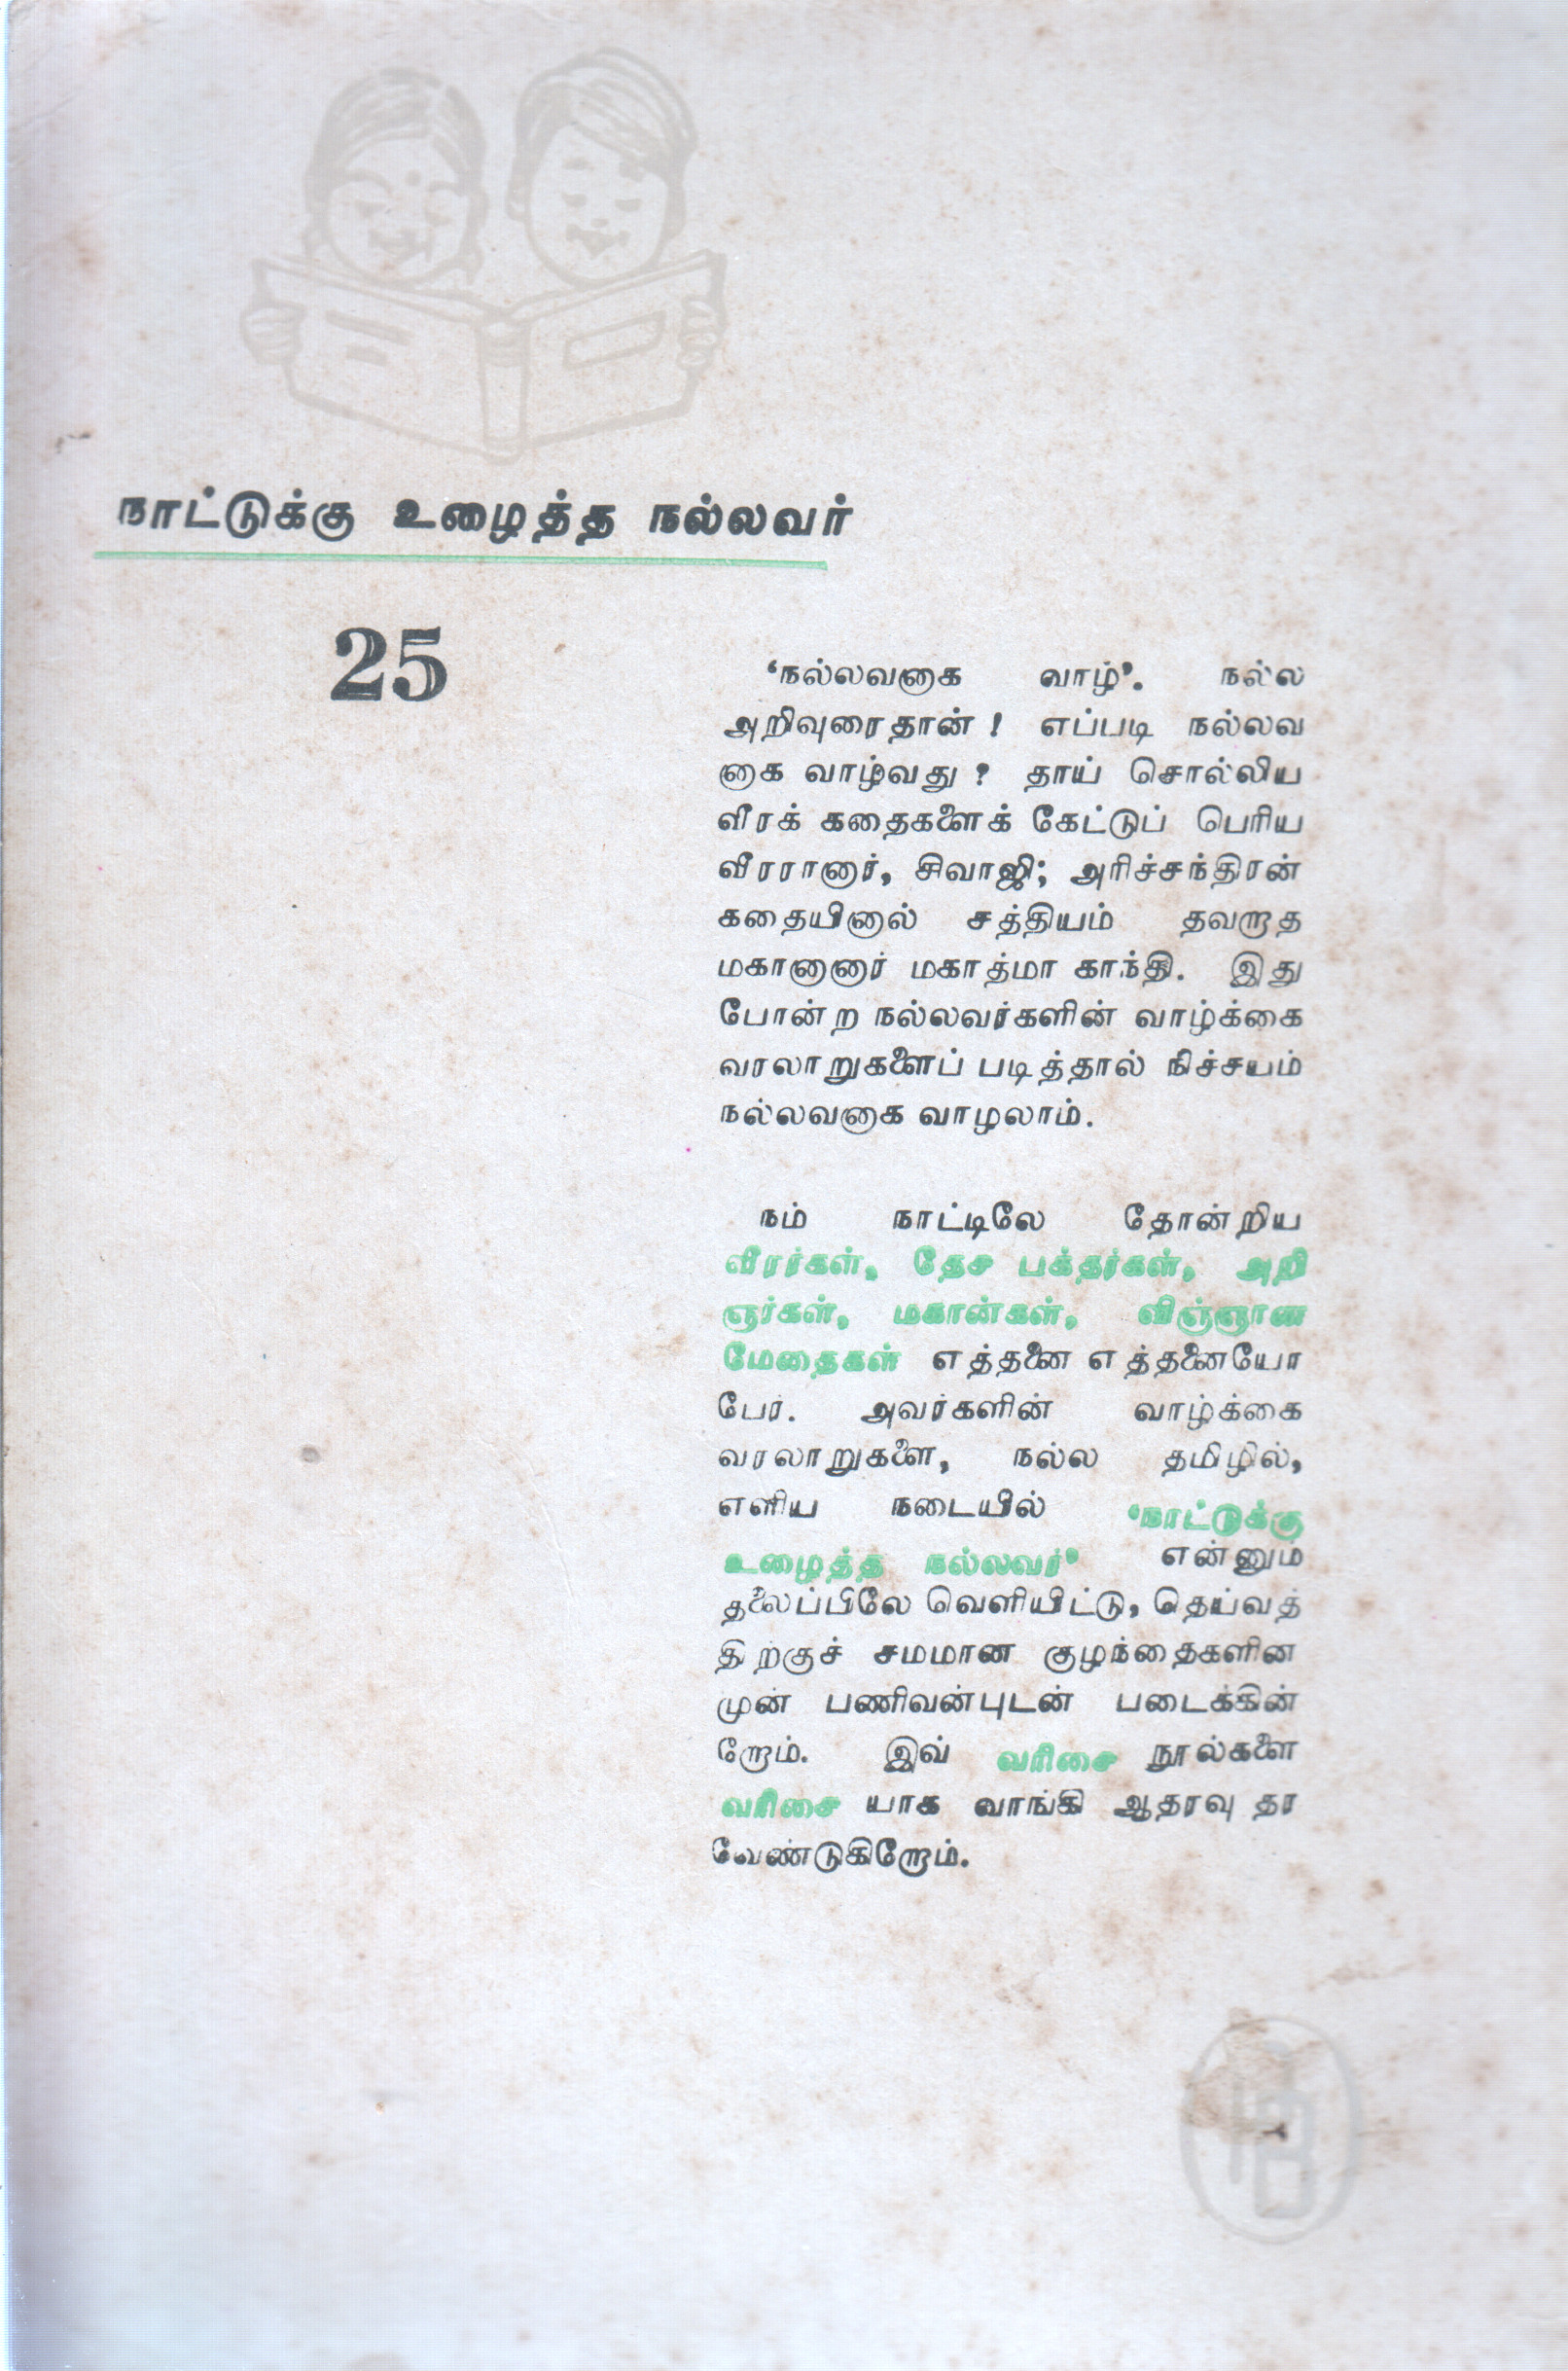 நாட்டுக்கு உழைத்த நல்லவர்
25
‘நல்லவனாக வாழ்’. நல்ல
அறிவுரைதான் ! எப்படி நல்லவ
னாக வாழ்வது ? தாய் சொல்லிய
வீரக் கதைகளைக் கேட்டுப் பெரிய
வீரரானார், சிவாஜி; அரிச்சந்திரன்
கதையினால் சத்தியம் தவறாத
மகானானார் மகாத்மா காந்தி. இது
போன்ற நல்லவர்களின் வாழ்க்கை
வரலாறுகளைப் படித்தால் நிச்சயம்
நல்லவனாக வாழலாம்.
நம் நாட்டிலே தோன்றிய
வீரர்கள், தேச பக்தர்கள், அறி
ஞர்கள், மகான்கள், விஞ்ஞான
மேதைகள் எத்தனை எத்தனையோ
பேர். அவர்களின் வாழ்க்கை
வரலாறுகளை, நல்ல தமிழில்,
எளிய நடையில் ‘நாட்டுக்கு
உழைத்த நல்லவர்’ என்னும்
தலைப்பிலே வெளியிட்டு, தெய்வத்
திற்குச் சமமான குழந்தைகளின
முன் பணிவன்புடன் படைக்கின்
றோம். இவ் வரிசை நூல்களை
வரிசை யாக வாங்கி ஆதரவு தர
வேண்டுகிறோம்.